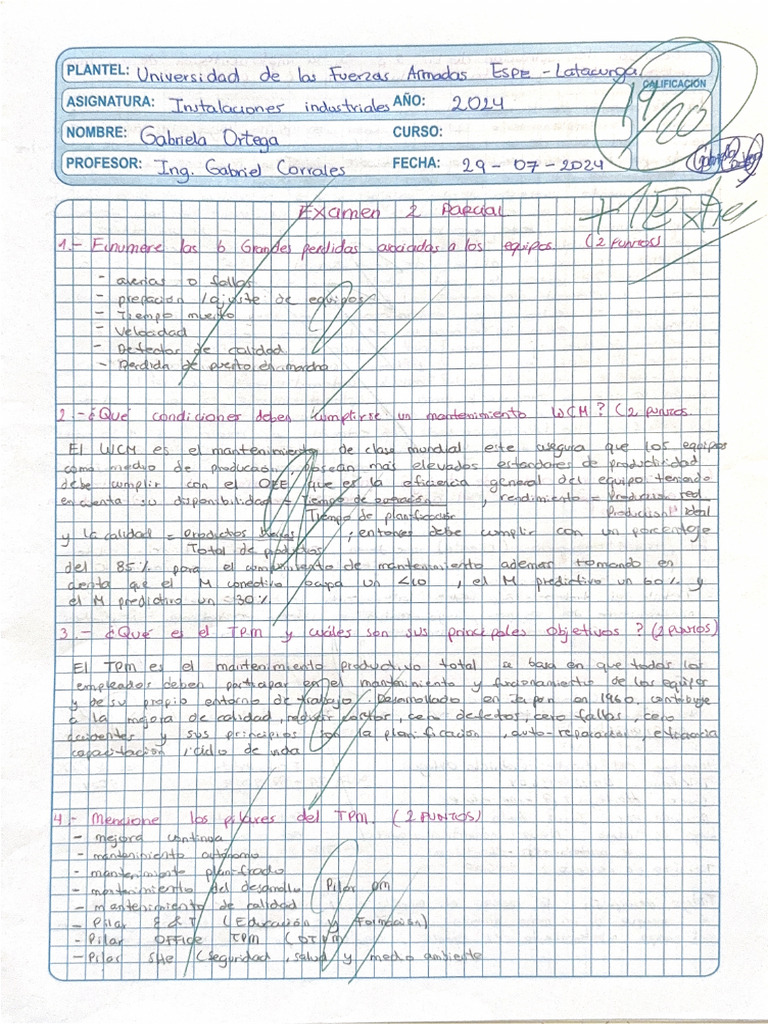 PLANTEL: Universidad de las Fuerzas Armadas ESPE - Latacunga
CALIFICACIÓN
19/20
ASIGNATURA: Instalaciones industriales AÑO: 2024
NOMBRE: Gabriela Ortega CURSO:
PROFESOR: Ing. Gabriel Corrales FECHA: 29 - 07 - 2024
Examen 2 Parcial
1.- Enumere las 6 Grandes perdidas asociadas a los equipos. (2 PUNTOS)
- averias o fallos
- prepación / ajuste de equipos
- Tiempo muerto
- Velocidad
- Defectos de calidad
- Perdida de puesta en marcha
2.- ¿Qué condiciones deben cumplirse un mantenimiento WCM? (2 PUNTOS.
El WCM es el mantenimiento de clase mundial este asegura que los equipos
como medio de producción, posean más elevados estandares de productividad
debe cumplir con el OEE que es la eficiencia general del equipo teniendo
en cuenta su disponibilidad = Tiempo de operación , rendimiento = Produccion real
Tiempo de planificación Produccion ideal
y la calidad = Productos ; entonces debe cumplir con un porcentaje
Total de productos
del 85% para el de mantenimiento ademas tomando en
cuenta que el M correctivo ocupa un <10 , el M predictivo un 60% y
el M predictivo un 30%
3.- ¿Qué es el TPM y cuáles son sus principales objetivos? (2 PUNTOS)
El TPM es el mantenimiento productivo total se basa en que todos los
empleados deben participar en el mantenimiento y funcionamiento de los equipos
y de su propio entorno de trabajo. Desarrollado en Japon en 1960, contribuye
a la mejora de calidad, reducir costos, cero defectos, cero fallos, cero
accidentes y sus principios son la planificación , auto-reparacion , eficiencia
capacitación , ciclo de vida
4.- Mencione los pilares del TPM. (2 PUNTOS)
- mejora continua
- mantenimiento autónomo
- mantenimiento planificado
- mantenimiento del desarrollo Pilar pm
- mantenimiento de calidad
- Pilar E&T (Educación y Formación)
- Pilar OFFICE TPM (OTPM)
- Pilar SHE (seguridad , salud y medio ambiente